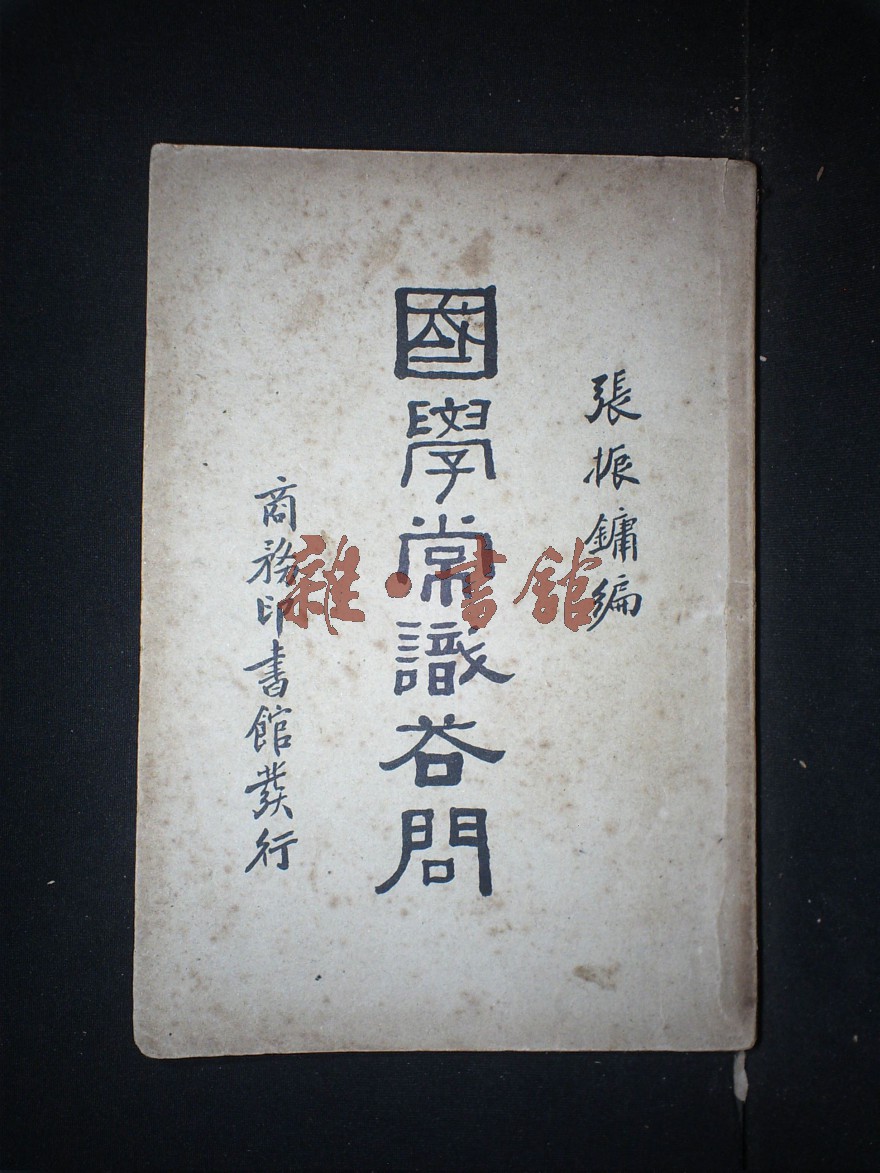 張振鏞編
國學常識荅問
商務印書館發行
雜·書館